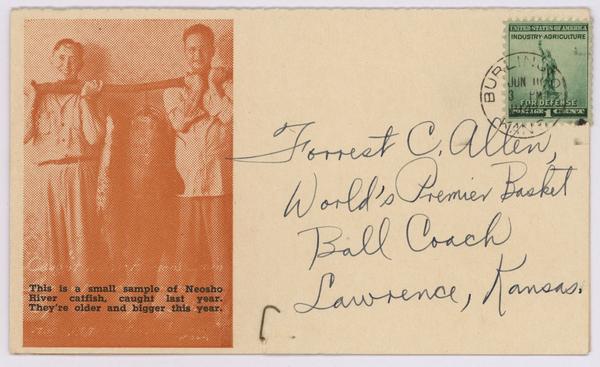 UNITED STATES OF AMERICA
INDUSTRY-AGRICULTURE
FOR DEFENSE
POSTAGE 1 CENT
JUN
Forrest C. Allen,
World's Premier Basket
Ball Coach
Lawrence, Kansas.
This is a small sample of Neosho
River catfish, caught last year.
They're older and bigger this year.